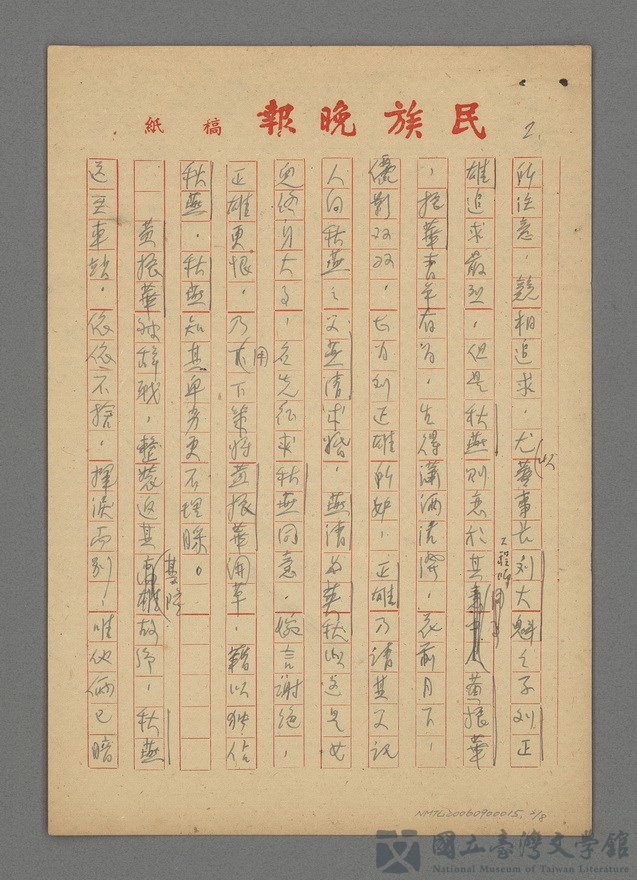 民族晚報 稿紙
2.
所注意，競相追求，尤以董事長劉大魁之子刘正
雄追求最烈，但是秋燕別恋於其工程师黄振華
，振華青年有为，生得瀟洒清秀，花前月下，
儷影双双，大为刘正雄所妒，正雄乃請其父託
人向秋燕之父燕清求婚，燕清为秋以这是女
兒終身大事，应先征求秋燕同意，婉言謝絕，
正雄更恨，乃用下策將黄振華開革，藉以独佔
秋燕，秋燕知其卑劣更不理睬。
黄振華被辞职，整裝返其基隆故鄉，秋燕
送至車站，依依不捨，揮淚而別，唯他倆已暗
NMTL20060900015 2/8
國立臺灣文學館
National Museum of Taiwan Literature